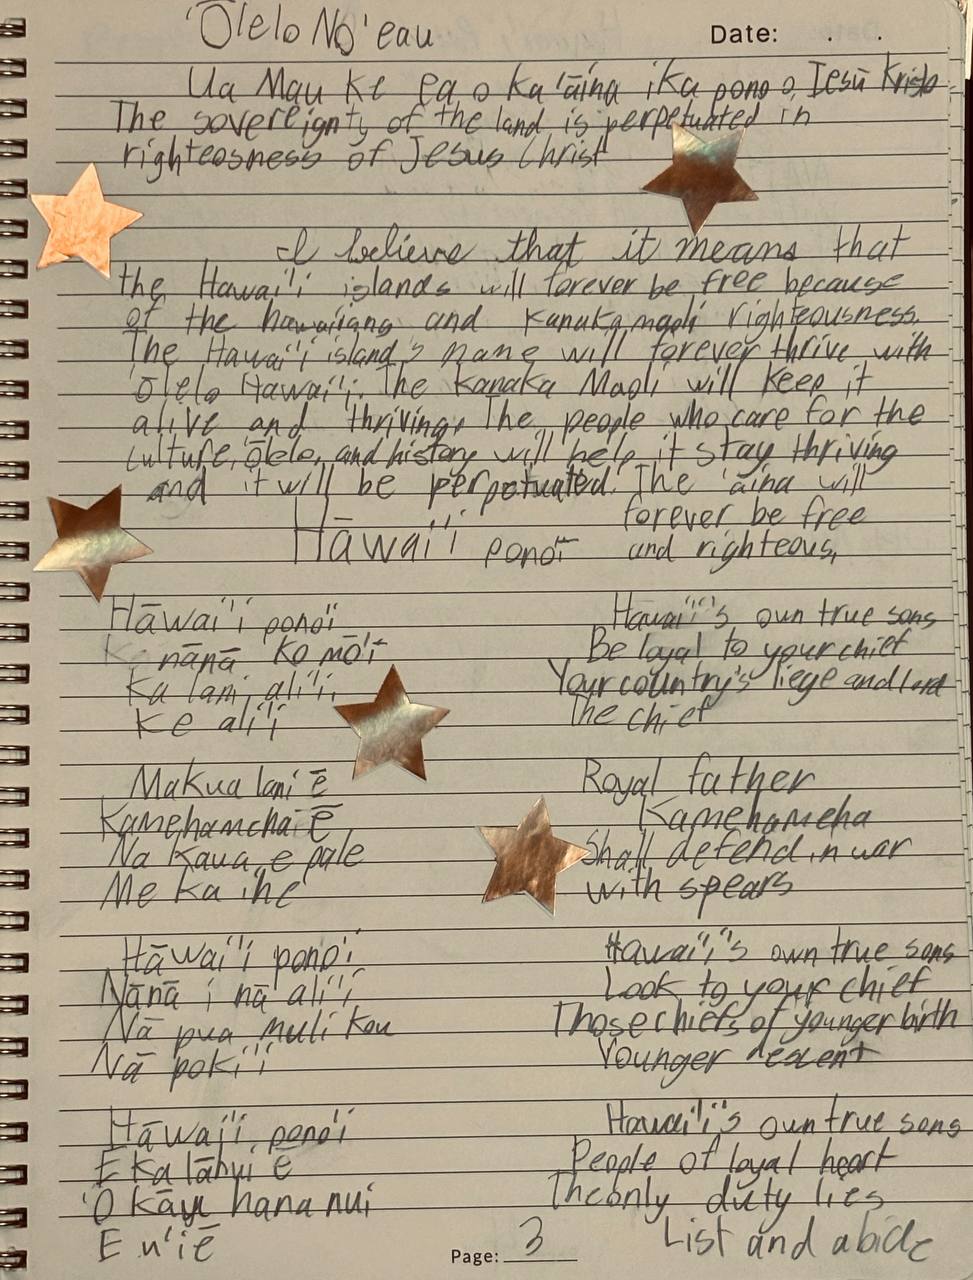 'Ōlelo No'eau
Date: . .
Ua Mau ke ea o ka 'āina i ka pono o Iesū Kristo
The sovereignty of the land is perpetuated in
righteosness of Jesus Christ
I believe that it means that
the Hawai'i islands will forever be free because
of the hawaiians and Kanaka maoli righteousness
The Hawai'i island's name will forever thrive with
'Ōlelo Hawai'i. The Kanaka Maoli will keep it
alive and thriving. The people who care for the
culture, 'ōlelo, and history will help it stay thriving
and it will be perpetuated. The 'āina will
forever be free
and righteous.
Hāwai'i pono'ī
Hāwai'i pono'ī
nānā 'ko mō'ī
Ka lani ali'i
Ke ali'i
Makua lani ē
Kamehameha ē
Na kaua e pale
Me ka ihe
Hāwai'i pono'i
Nānā i nā ali'i
Nā pua muli kou
Nā poki'i
Hāwai'i pono'i
E ka lāhui ē
'O kāu hana nui
E u'iē
Hawai'i's own true sons
Be loyal to your chief
Your country's liege and lord
The chief
Royal father
Kamehameha
Shall defend in war
with spears
Hawai'i's own true sons
Look to your chief
Those chiefs of younger birth
Younger descent
Hawai'i's own true sons
People of loyal heart
The only duty lies
List and abide
Page: 3